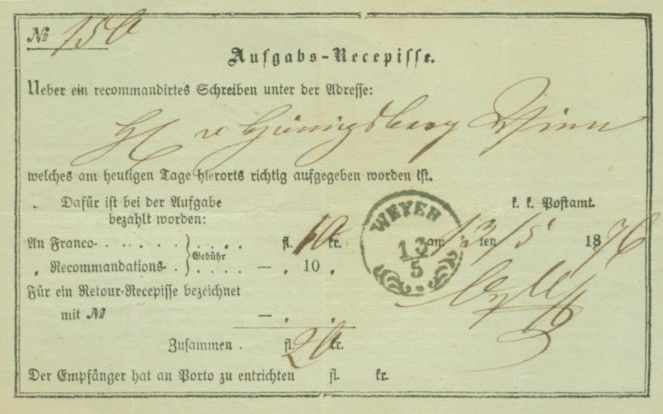 № 150
Aufgabs-Recepisse.
Ueber ein recommandirtes Schreiben unter der Adresse:
H v Königsberg Wien
welches am heutigen Tage hierorts richtig aufgegeben worden ist.
Dafür ist bei der Aufgabe
bezahlt worden:
k. k. Postamt.
WEYER
13
5
An Franco . . . . . . Gebühr . . . . fl. 10 kr.
am 13ten /5 1876
„ Recommandations . . — „ 10 „
Für ein Retour-Recepisse bezeichnet
mit № — „ „
Zusammen . fl. 20 kr.
Der Empfänger hat an Porto zu entrichten fl. kr.